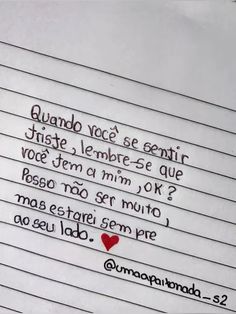 Quando você se sentir
triste, lembre-se que
você tem a mim, OK?
Posso não ser muito,
mas estarei sempre
ao seu lado.
@umaapaixonada_s2